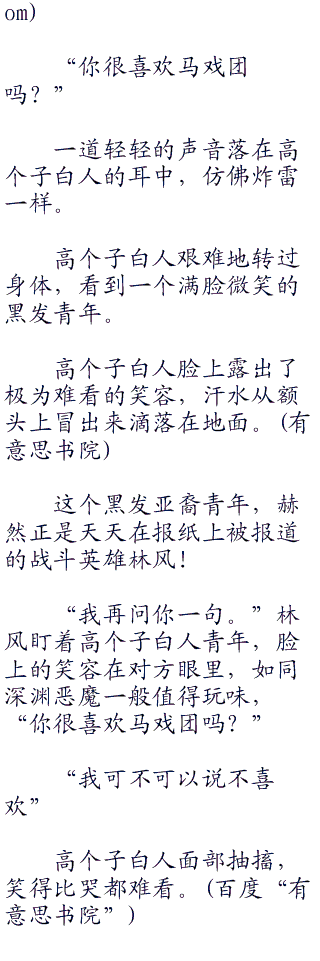 om)
“你很喜欢马戏团
吗？”
一道轻轻的声音落在高
个子白人的耳中，仿佛炸雷
一样。
高个子白人艰难地转过
身体，看到一个满脸微笑的
黑发青年。
高个子白人脸上露出了
极为难看的笑容，汗水从额
头上冒出来滴落在地面。(有
意思书院)
这个黑发亚裔青年，赫
然正是天天在报纸上被报道
的战斗英雄林风！
“我再问你一句。”林
风盯着高个子白人青年，脸
上的笑容在对方眼里，如同
深渊恶魔一般值得玩味，
“你很喜欢马戏团吗？”
“我可不可以说不喜
欢”
高个子白人面部抽搐，
笑得比哭都难看。(百度“有
意思书院”)